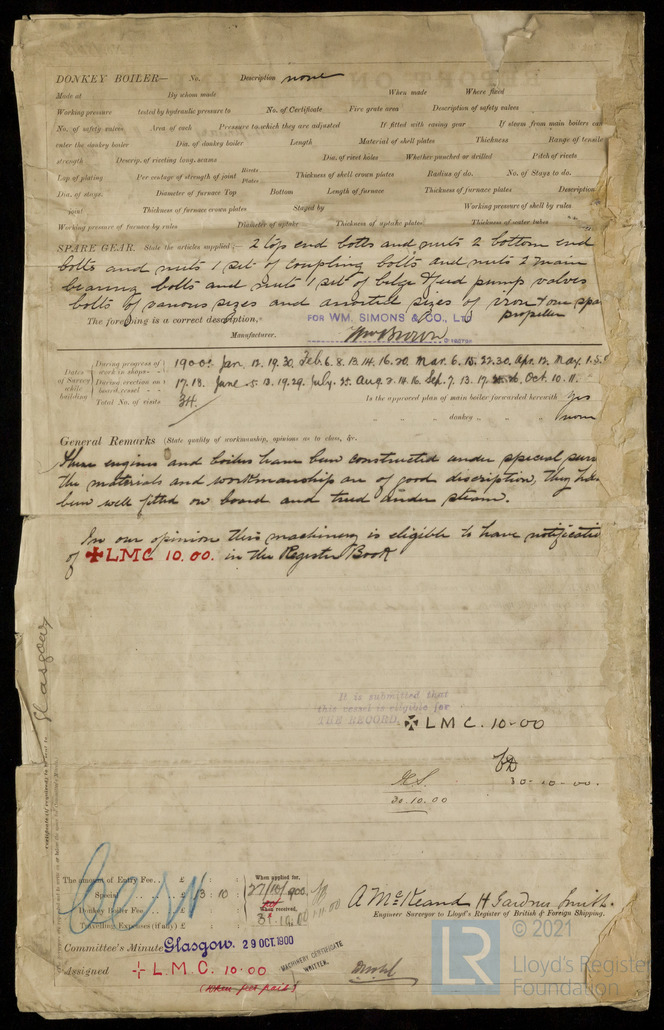 DONKEY BOILER— No. Description none
Made at By whom made When made Where fixed
Working pressure tested by hydraulic pressure to No. of Certificate Fire grate area Description of safety valves
No. of safety valves Area of each Pressure to which they are adjusted If fitted with easing gear If steam from main boilers can
enter the donkey boiler Dia. of donkey boiler Length Material of shell plates Thickness Range of tensile
strength Descrip. of riveting long. seams Dia. of rivet holes Whether punched or drilled Pitch of rivets
Lap of plating Per centage of strength of joint Rivets Plates Thickness of shell crown plates Radius of do. No. of Stays to do.
Dia. of stays. Diameter of furnace Top Bottom Length of furnace Thickness of furnace plates Description
joint Thickness of furnace crown plates Stayed by Working pressure of shell by rules
Working pressure of furnace by rules Diameter of uptake Thickness of uptake plates Thickness of water tubes
SPARE GEAR. State the articles supplied:— 2 top end bolts and nuts 2 bottom end
bolts and nuts 1 set of coupling bolts and nuts 2 main
bearing bolts and nuts 1 set of bilge & feed pump valves
bolts of various sizes and assorted sizes of iron & one spa
propeller
The foregoing is a correct description,
FOR WM. SIMONS & CO., LTD
Manufacturer. Wm Brown
Dates of Survey while building
During progress of work in shops - - 1900: Jan. 13. 19. 30. Feb. 6. 8. 13. 14. 16. 20. Mar. 6. 15. 22. 30. Apr. 12. May. 1. 5.
During erection on board vessel - - 17. 18. June 5. 13. 19. 29. July. 31. Aug. 2. 14. 16. Sep. 7. 13. 17. 26. Oct. 10. 11.
Total No. of visits 34. Is the approved plan of main boiler forwarded herewith yes
" " " donkey " " " none
General Remarks (State quality of workmanship, opinions as to class, &c.
These engines and boilers have been constructed under special surv
the materials and workmanship are of good discription, they have
been well fitted on board and tried under steam.
In our opinion this machinery is eligible to have notificatio
of ✠ LMC 10.00. in the Register Book
Glasgow
It is submitted that
this vessel is eligible for
THE RECORD. ✠ L M C. 10-00
30-10-00.
30.10.00
The amount of Entry Fee . . £ : :
Special . . £ 13 : 10 :
Donkey Boiler Fee . . £ : :
Travelling Expenses (if any) £ : :
When applied for,
27/10/900
When received,
31.10.00
A McKeand H. Gardner Smith.
Engineer Surveyor to Lloyd's Register of British & Foreign Shipping.
Committee's Minute Glasgow. 29 OCT. 1900
Assigned + L.M.C. 10.00
(when fee paid)
MACHINERY CERTIFICATE
WRITTEN.
© 2021
LR
Lloyd's Register
Foundation